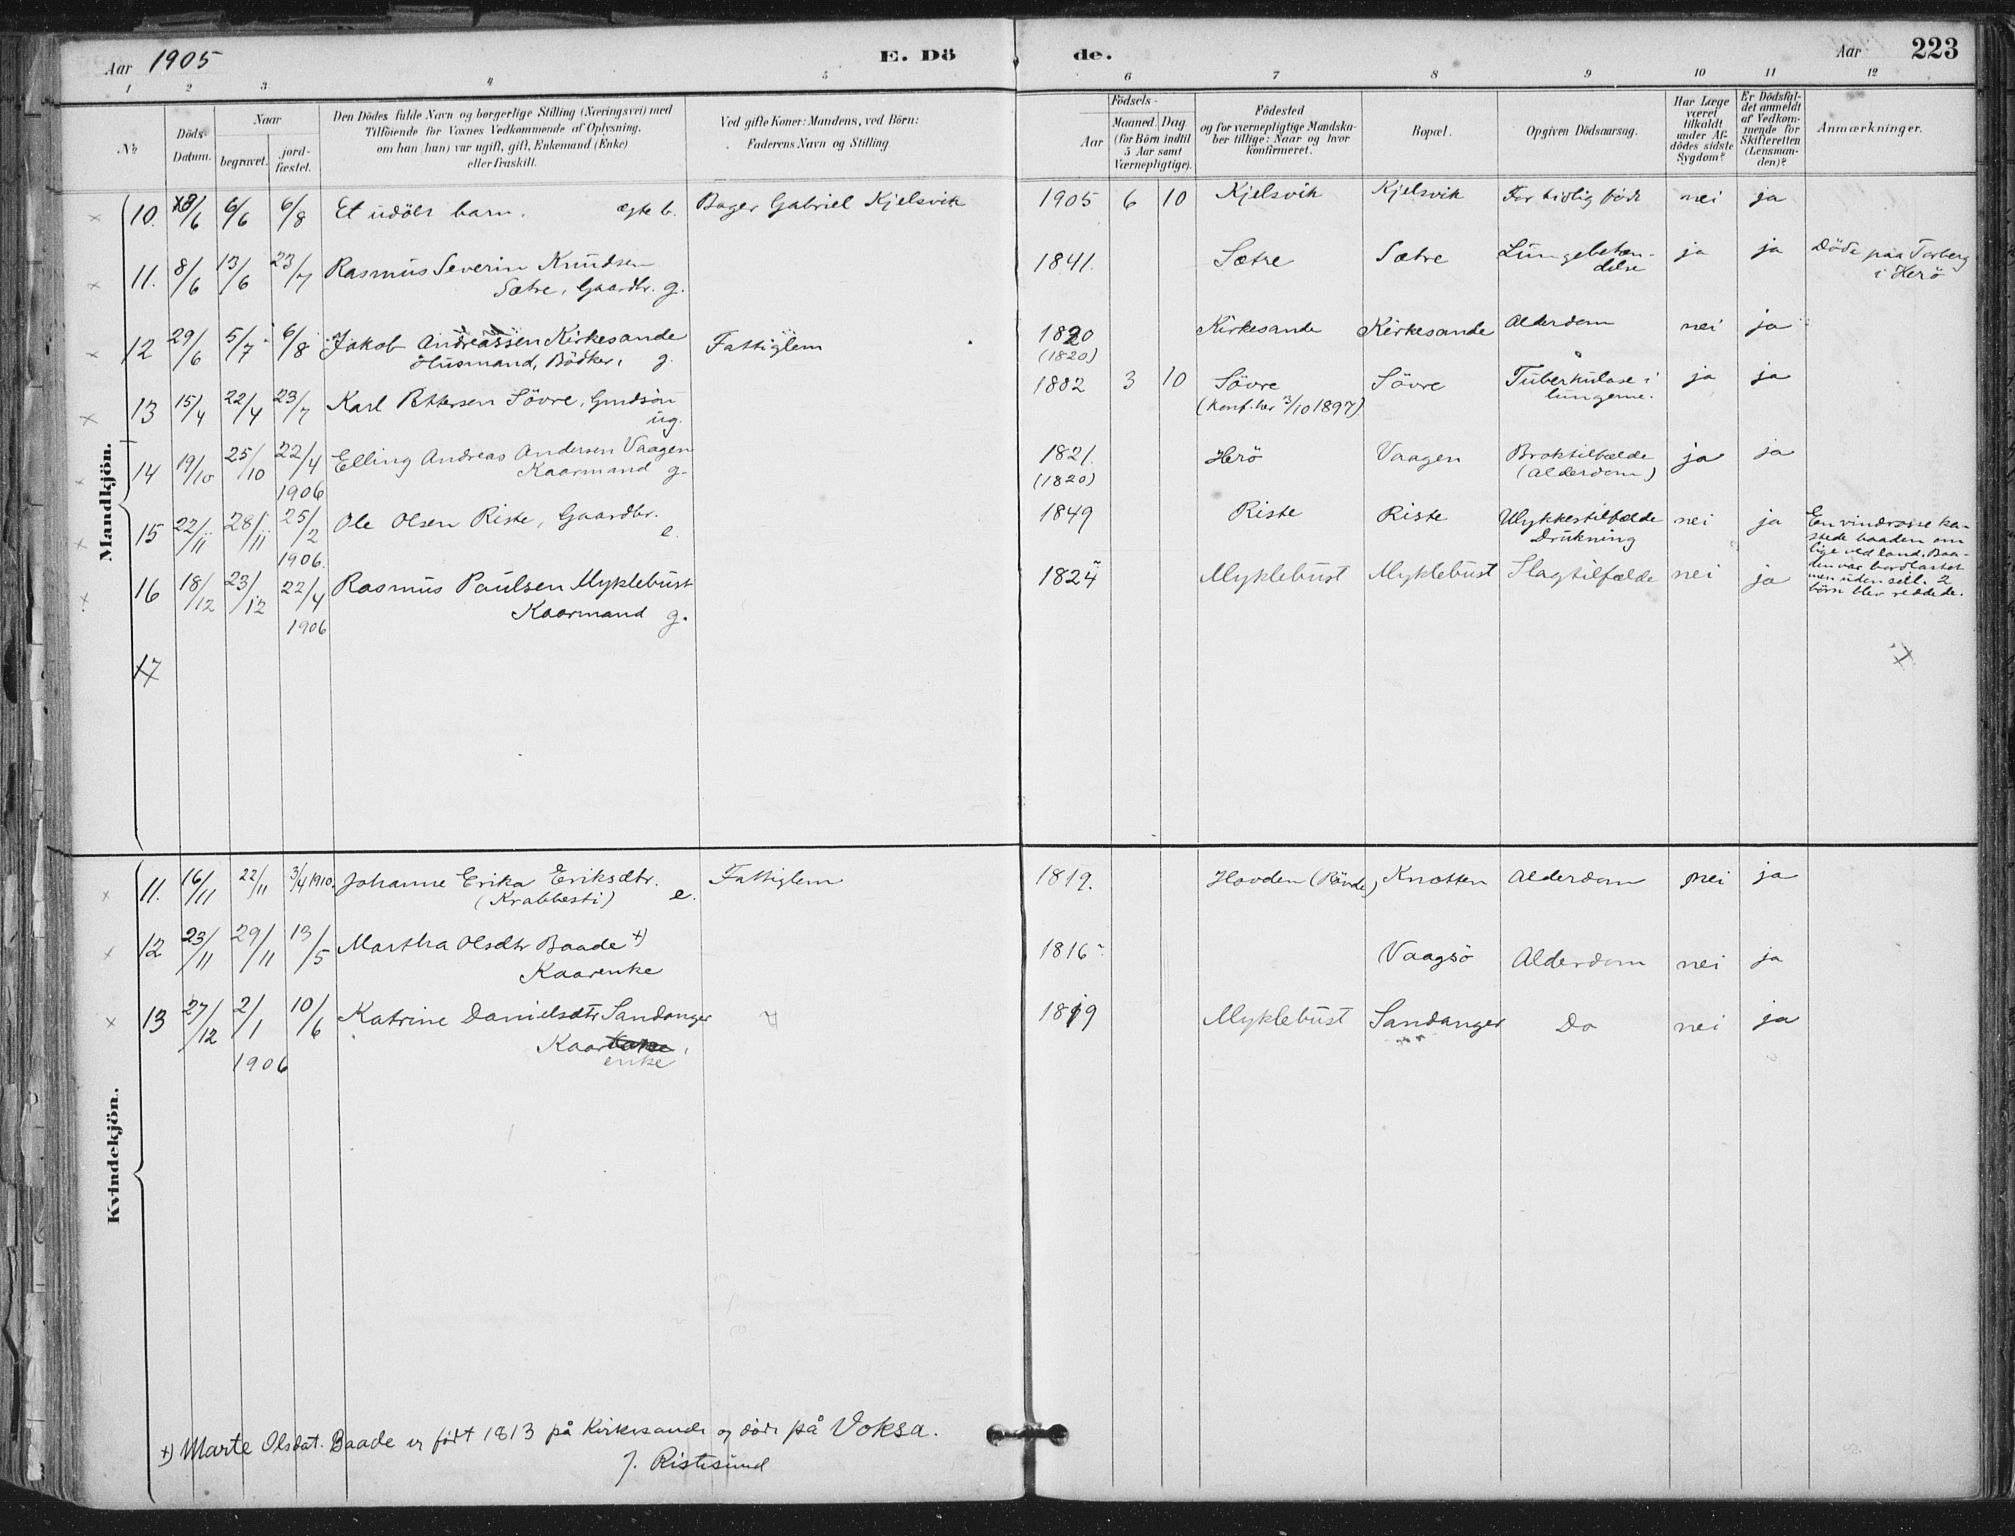 Aar 1905
E. Dö
de.
Aar
223
1 2 3 4 5 6 7 8 9 10 11 12
№
Döds-
Datum.
Naar
begravet.
jord-
fæstet.
Den Dödes fulde Navn og borgerlige Stilling (Næringsvei) med
Tilföiende for Voxnes Vedkommende af Oplysning,
om han (hun) var ugift, gift, Enkemand (Enke)
eller fraskilt.
Ved gifte Koner: Mandens, ved Börn:
Faderens Navn og Stilling.
Födsels-
Aar
Maaned. Dag
(for Börn indtil
5 Aar samt
Værnepligtige).
Födested
og for værnepligtige Mandska-
ber tillige: Naar og hvor
konfirmeret.
Bopæl.
Opgiven Dödsaarsag.
Har Læge
været
tilkaldt
under Af-
dödes sidste
Sygdom?
Er Dödsfal-
det anmeldt
af Vedkom-
mende for
Skifteretten
(Lensman-
den)?
Anmærkninger.
Mandkjön.
10. 6/6 6/8 Et udöbt barn. ægte b. Bager Gabriel Kjelsvik 1905 6 10 Kjelsvik Kjelsvik For tidlig född nei ja
11. 8/6 13/6 23/7 Rasmus Severin Knudsen 1841. Sætre Sætre Lungebetæn- ja ja Döde paa Torberg
Sætre, Gaardbr. g. delse i Herö
12 29/6 5/7 6/8 Jakob Andreassen Kirkesande Fattiglem 1820 Kirkesande Kirkesande Alderdom nei ja
Husmand, Bödker, g. (1820)
13 15/4 22/4 23/7 Karl Pettersen Sövre, Grudsön 1882 3 10 Sövre Sövre Tuberkulose i ja ja
ug. (Konf. her 3/10 1897) lungerne.
14 19/10 25/10 22/4 Elling Andreas Andersen Vaagen 1821. Herö Vaagen Broktilfælde ja ja
1906 Kaarmand g. (1820) (Alderdom)
15 22/11 28/11 25/2 Ole Olsen Riste, Gaardbr. 1849 Riste Riste Ulykkestilfælde nei ja En vindrosse ka-
1906. e. Drukning stede baaden om
lige ved land. Baa-
den var bordlastet
men uden seil. 2
börn blev reddede.
16 18/12 23/12 22/4 Rasmus Paulsen Myklebust 1824 Myklebust Myklebust Slagtilfælde nei ja
1906 Kaarmand g.
17
Kvindekjön.
11. 16/11 22/11 3/4 1910. Johanne Erika Eriksdtr. Fattiglem 1819. Hovden (Rövde) Knotten Alderdom nei ja
(Krabbesti) e.
12 23/11 29/11 13/5 Martha Olsdtr Baade +) 1816 Vaagsö Alderdom nei ja
Kaarenke
13 27/12 2/1 10/6 Katrine Danielsdtr Sandanger 1819 Myklebust Sandanger Do nei ja
1906 Kaar
enke
+) Marte Olsdat. Baade er födt 1813 på Kirkesande og döde på Voksa.
J. Ristesund